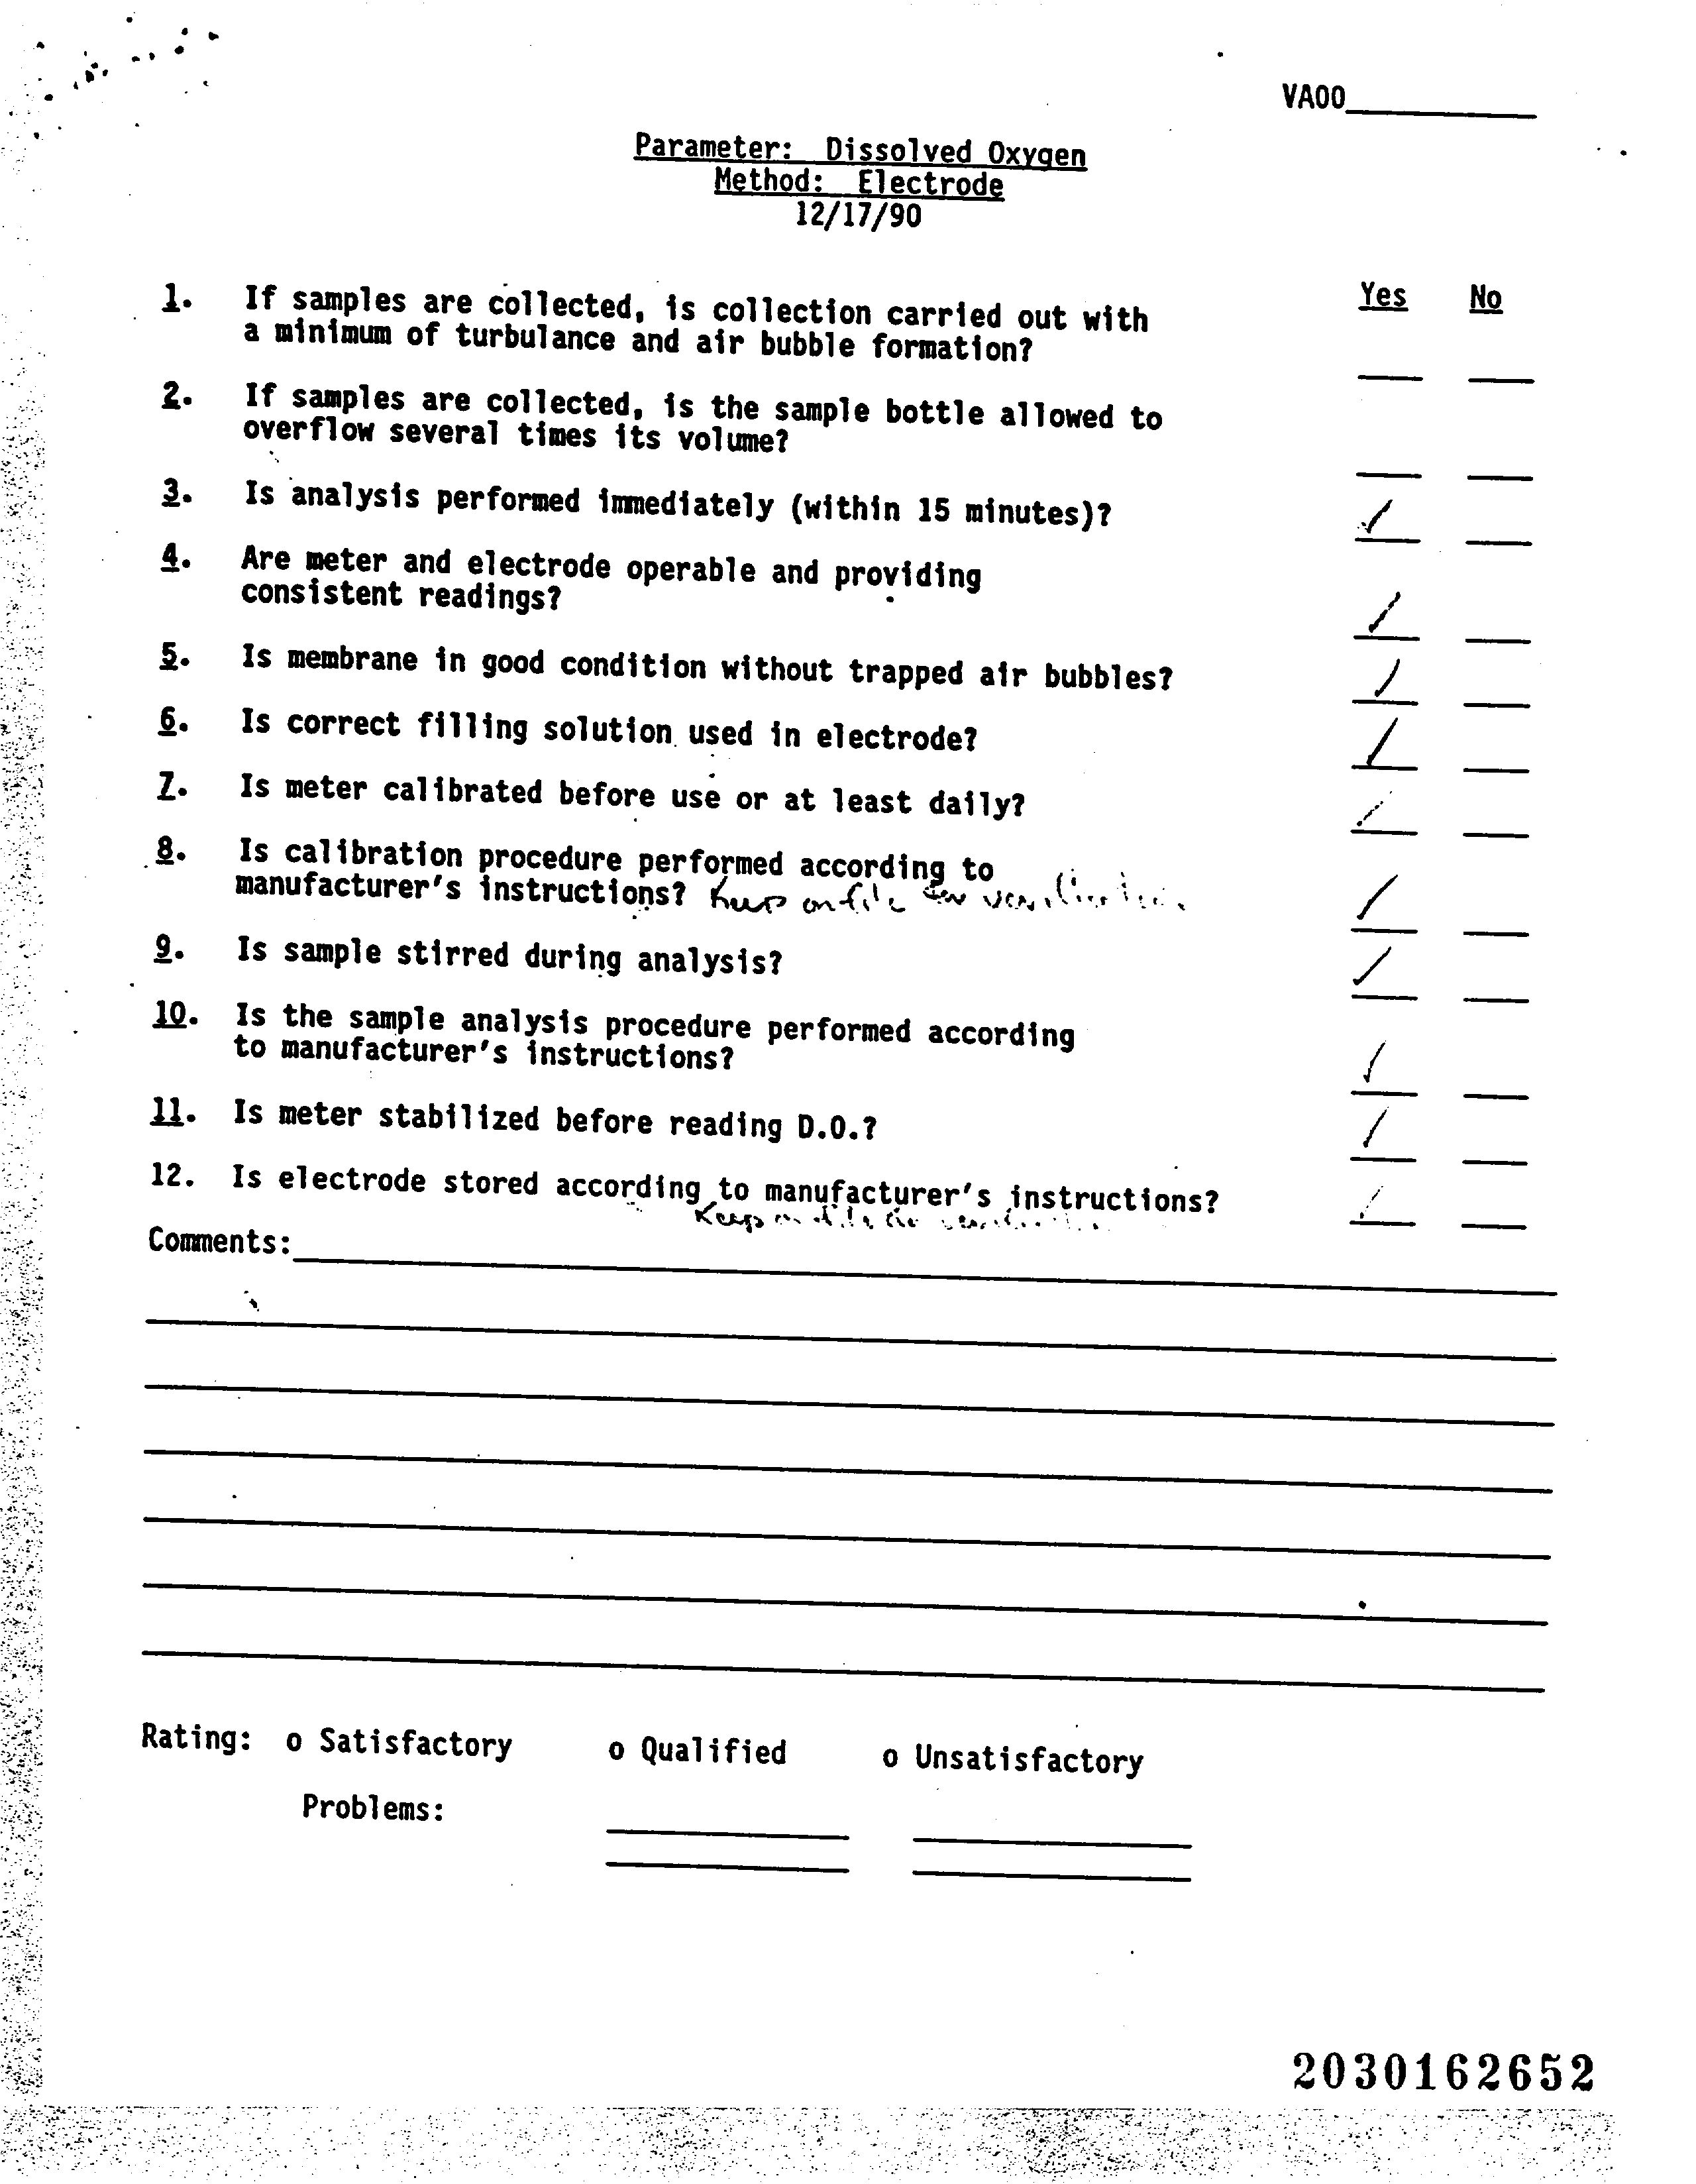 VA00
Parameter: Dissolved Oxygen
Method: Electrode
12/17/90
Yes No
1. If samples are collected, is collection carried out with
a minimum of turbulance and air bubble formation?
2. If samples are collected, is the sample bottle allowed to
overflow several times its volume?
3. Is analysis performed immediately (within 15 minutes)?
4. Are meter and electrode operable and providing
consistent readings?
5. Is membrane in good condition without trapped air bubbles?
6. Is correct filling solution used in electrode?
7. Is meter calibrated before use or at least daily?
8. Is calibration procedure performed according to
manufacturer's instructions? Keep on file for verification.
9. Is sample stirred during analysis?
10. Is the sample analysis procedure performed according
to manufacturer's instructions?
11. Is meter stabilized before reading D.O.?
12. Is electrode stored according to manufacturer's instructions?
Keep on file for
Comments:
Rating: o Satisfactory o Qualified o Unsatisfactory
Problems:
2030162652